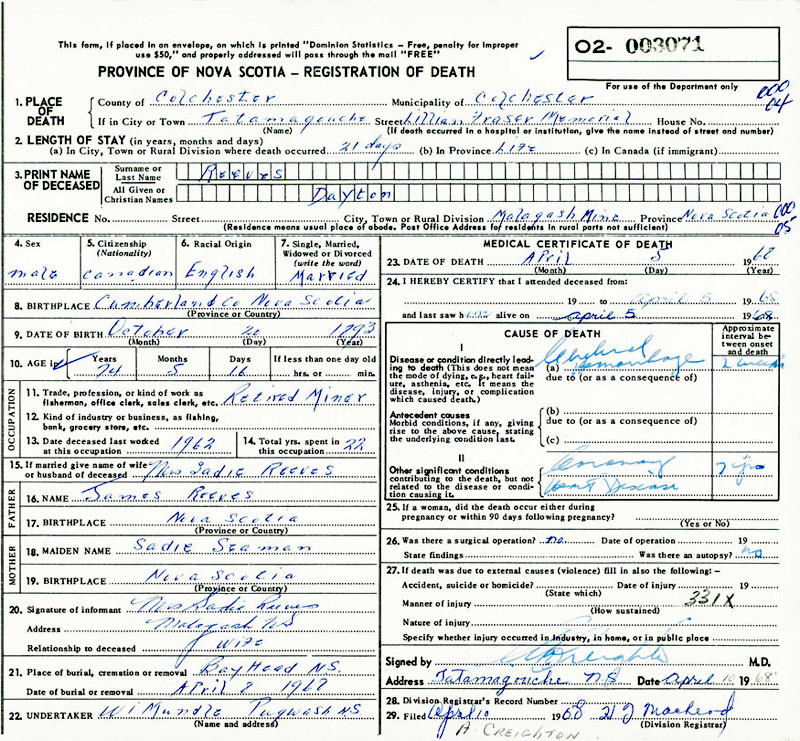 This form, if placed in an envelope, on which is printed "Dominion Statistics – Free, penalty for improper
use $50," and properly addressed will pass through the mail "FREE"
02- 003071
PROVINCE OF NOVA SCOTIA – REGISTRATION OF DEATH
For use of the Department only
000
04
1. PLACE OF DEATH
County of Colchester Municipality of Colchester
If in City or Town Tatamagouche Street Lillian Fraser Memorial House No.
(Name) (If death occurred in a hospital or institution, give the name instead of street and number)
2. LENGTH OF STAY (in years, months and days)
(a) In City, Town or Rural Division where death occurred 21 days (b) In Province Life (c) In Canada (if immigrant)
3. PRINT NAME OF DECEASED
Surname or Last Name Reeves
All Given or Christian Names Dayton
RESIDENCE No. Street City, Town or Rural Division Malagash Mine Province Nova Scotia
000
05
(Residence means usual place of abode. Post Office Address for residents in rural parts not sufficient)
4. Sex male
5. Citizenship (Nationality) Canadian
6. Racial Origin English
7. Single, Married, Widowed or Divorced (write the word) Married
8. BIRTHPLACE Cumberland Co Nova Scotia
(Province or Country)
9. DATE OF BIRTH October 20 1893
(Month) (Day) (Year)
10. AGE in Years 74 Months 5 Days 16 If less than one day old
hrs. or min.
OCCUPATION
11. Trade, profession, or kind of work as fisherman, office clerk, sales clerk, etc. Retired Miner
12. Kind of industry or business, as fishing, bank, grocery store, etc.
13. Date deceased last worked at this occupation 1962
14. Total yrs. spent in this occupation 22
15. If married give name of wife or husband of deceased Mrs Sadie Reeves
FATHER
16. NAME James Reeves
17. BIRTHPLACE Nova Scotia
(Province or Country)
MOTHER
18. MAIDEN NAME Sadie Seaman
19. BIRTHPLACE Nova Scotia
(Province or Country)
20. Signature of informant Mrs Sadie Reeves
Address Malagash NS
Relationship to deceased Wife
21. Place of burial, cremation or removal Bay Head N.S.
Date of burial or removal April 8 1968
22. UNDERTAKER W i Mundle Pugwash N.S.
(Name and address)
MEDICAL CERTIFICATE OF DEATH
23. DATE OF DEATH April 5 1968
(Month) (Day) (Year)
24. I HEREBY CERTIFY that I attended deceased from:
19 to april 5 1968
and last saw him alive on april 5 1968
CAUSE OF DEATH
Approximate interval between onset and death
I
Disease or condition directly leading to death (This does not mean the mode of dying, e.g., heart failure, asthenia, etc. It means the disease, injury, or complication which caused death.)
(a) Cerebral Hemorrhage
due to (or as a consequence of)
Antecedent causes
Morbid conditions, if any, giving rise to the above cause, stating the underlying condition last.
(b)
due to (or as a consequence of)
(c)
II
Other significant conditions contributing to the death, but not related to the disease or condition causing it.
Coronary
Heart Disease
7 yrs
25. If a woman, did the death occur either during pregnancy or within 90 days following pregnancy?
(Yes or No)
26. Was there a surgical operation? no. Date of operation 19
State findings Was there an autopsy? no
27. If death was due to external causes (violence) fill in also the following:–
Accident, suicide or homicide? Date of injury 19
(State which)
Manner of injury 331X
(How sustained)
Nature of injury
Specify whether injury occurred in industry, in home, or in public place
Signed by A Creighton M.D.
Address Tatamagouche N S Date April 10 1968
28. Division Registrar's Record Number
29. Filed Apr 10 1968
(Division Registrar)
A. CREIGHTON